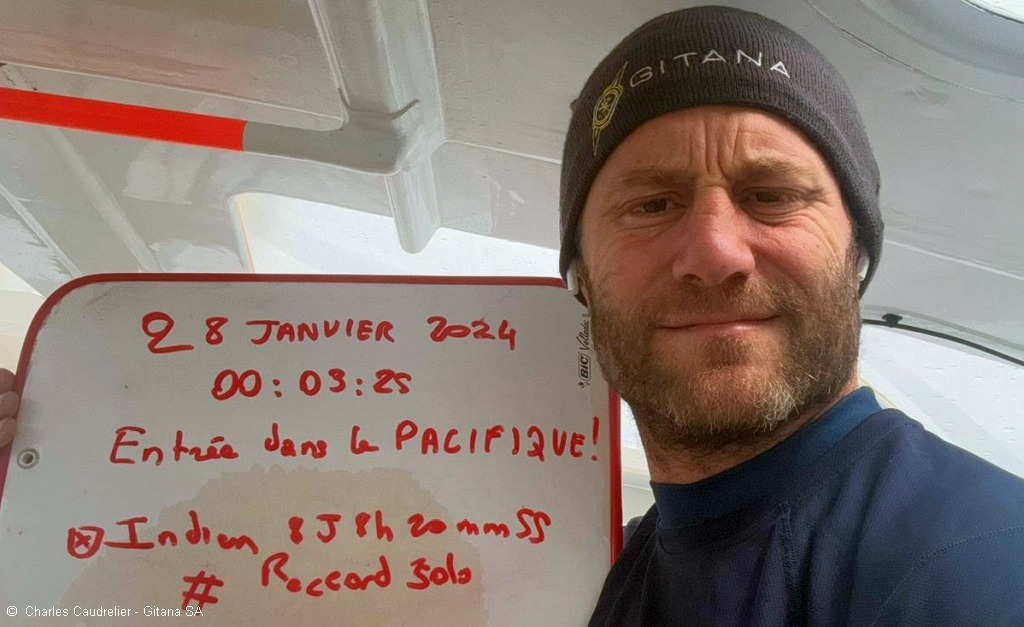 GITANA
28 JANVIER 2024
00:03:25
Entrée dans le PACIFIQUE!
BIC Velleda
Indien 8J 8h 20mm 55
# Reccord Solo
© Charles Caudrelier - Gitana SA